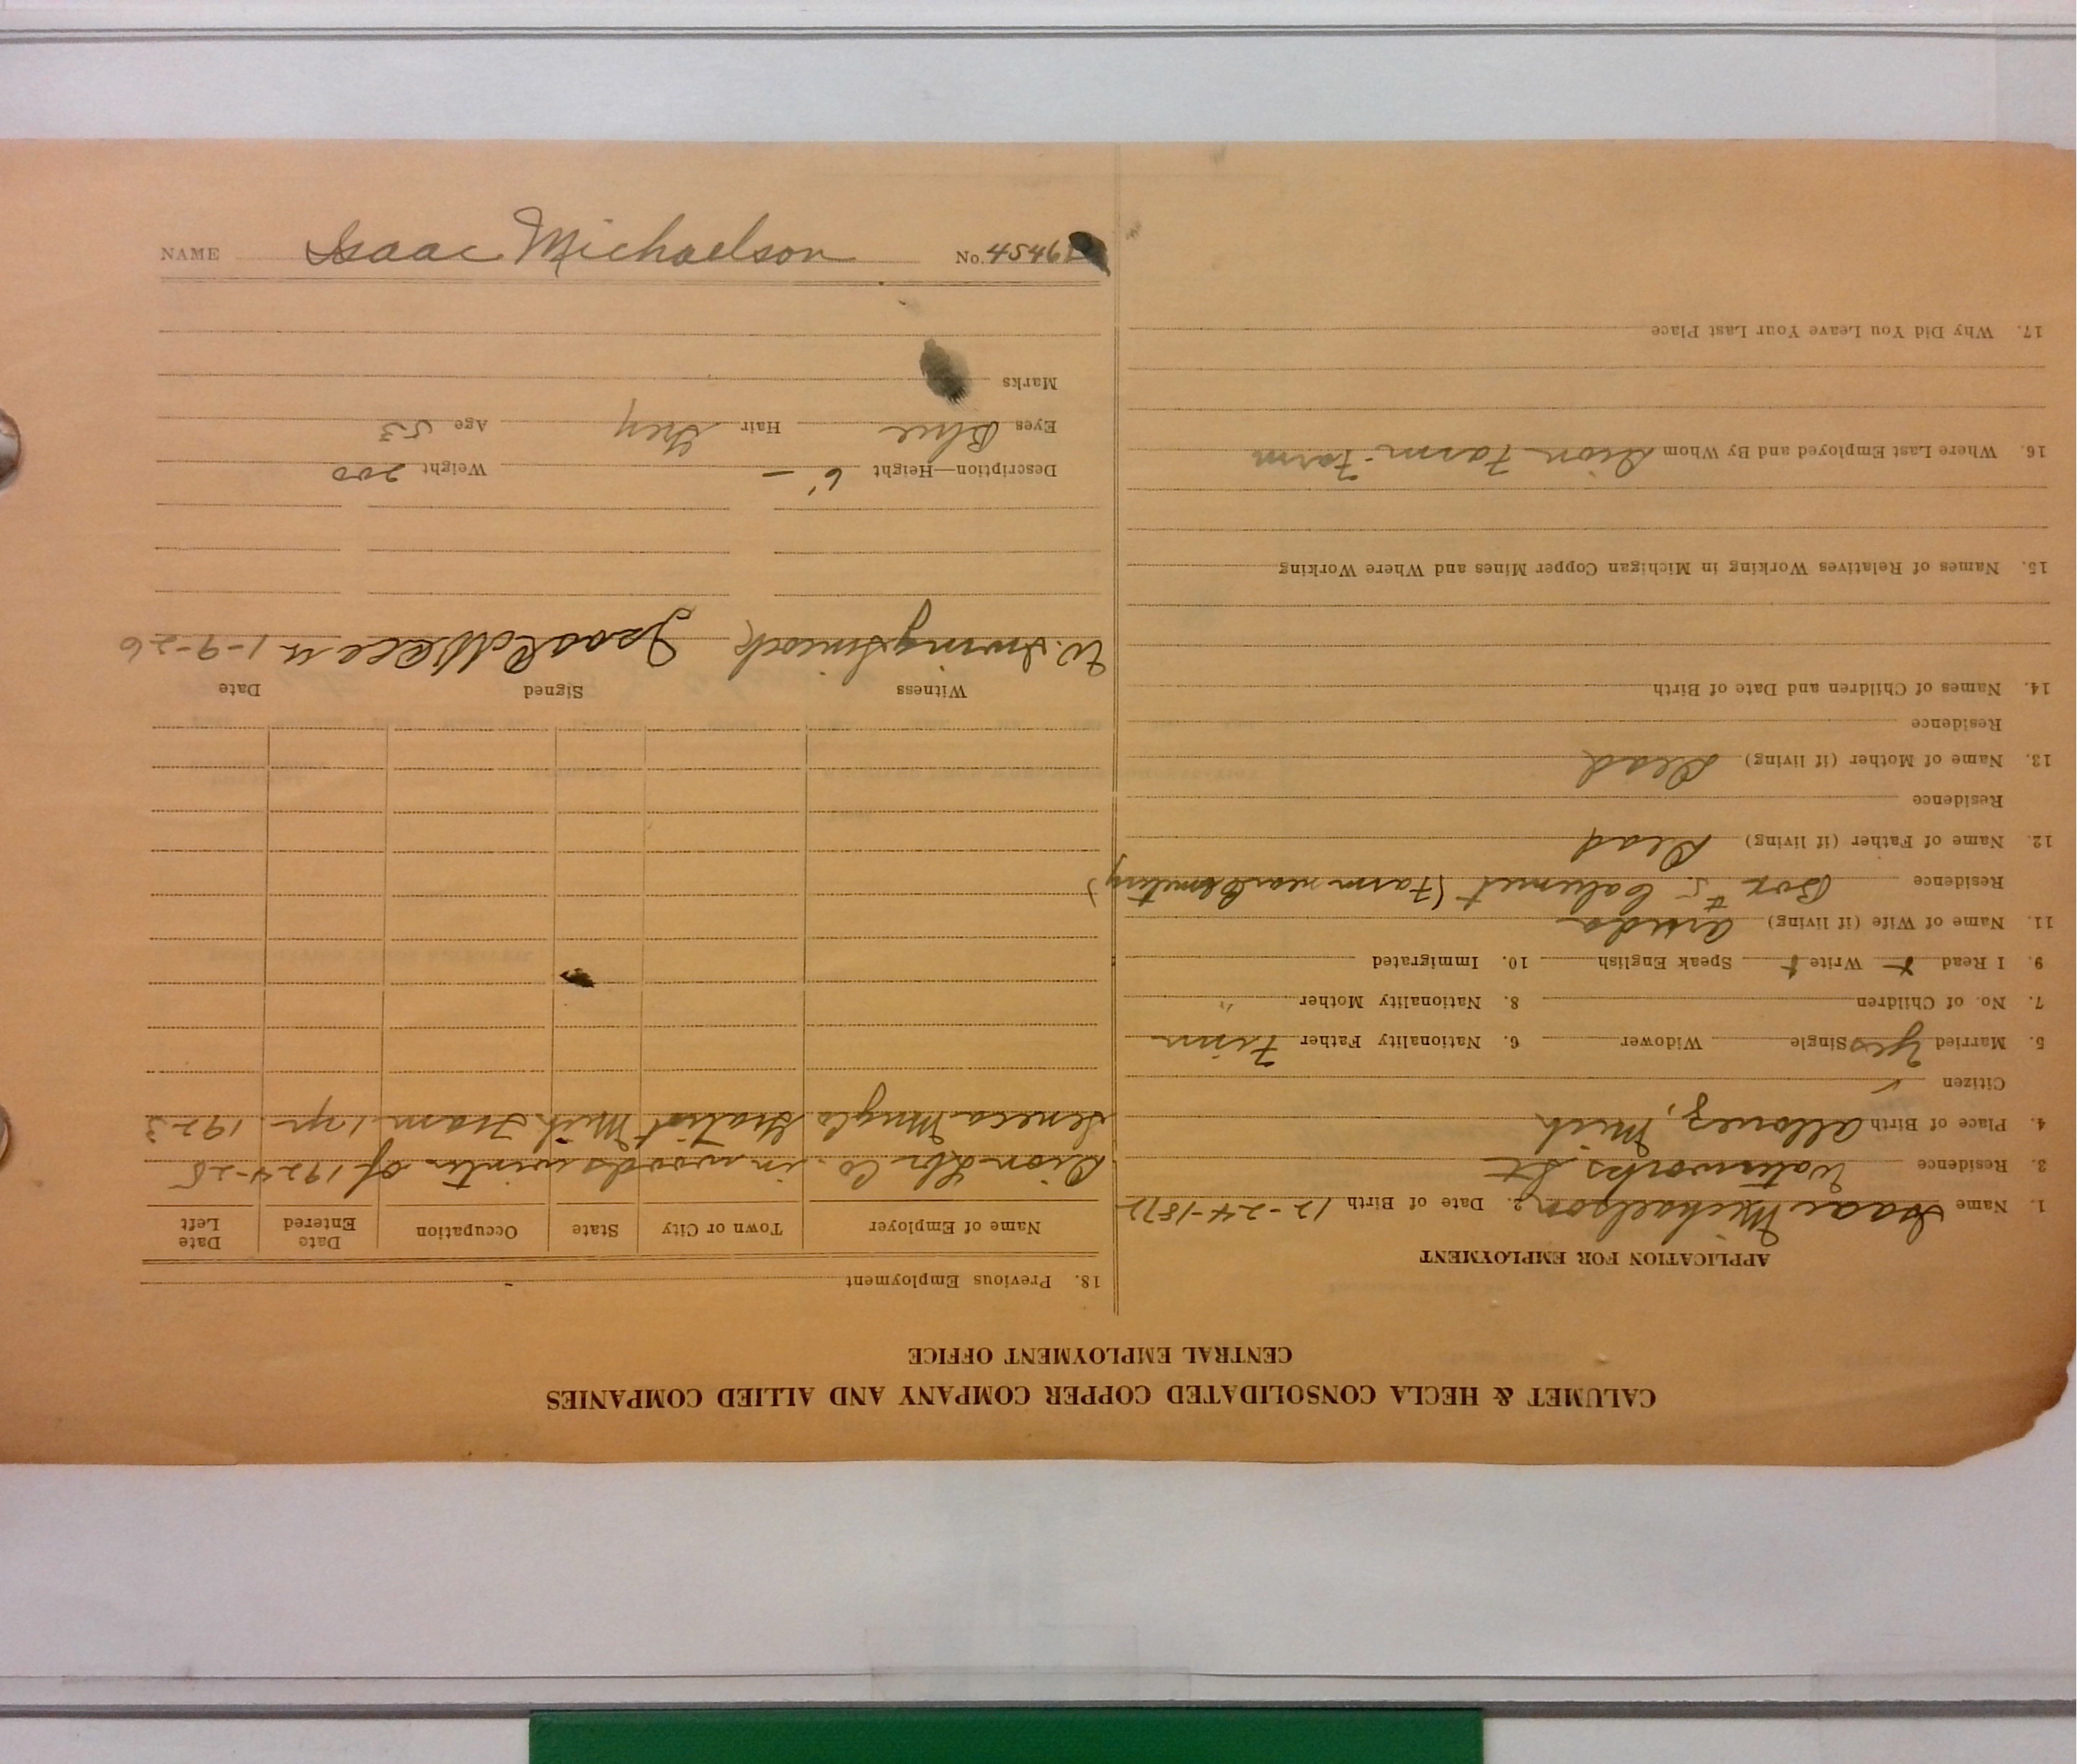 CALUMET & HECLA CONSOLIDATED COPPER COMPANY AND ALLIED COMPANIES
CENTRAL EMPLOYMENT OFFICE
APPLICATION FOR EMPLOYMENT
1. Name Isaac Michaelson 2. Date of Birth 12-24-1872
3. Residence Waterworks St
4. Place of Birth Allouez, Mich
Citizen ✓
5. Married Yes Single Widower 6. Nationality Father Finn
7. No. of Children 8. Nationality Mother "
9. I Read Write Speak English 10. Immigrated
11. Name of Wife (if living)
Residence Box #5 Calumet (Farm near Cemetery)
12. Name of Father (if living) Dead
Residence
13. Name of Mother (if living) Dead
Residence
14. Names of Children and Date of Birth
15. Names of Relatives Working in Michigan Copper Mines and Where Working
16. Where Last Employed and By Whom Dion Farm - Farm
17. Why Did You Leave Your Last Place
18. Previous Employment
Name of Employer Town or City State Occupation Date Entered Date Left
Dion Lbr Co. in woods winter of 1924-25
Seneca Mng Co. Gratiot Mich 1 yr. 1923
Witness Signed Date
W. Irving 1-9-26
Description—Height 6' — Weight 200
Eyes Blue Hair Grey Age 53
Marks
NAME Isaac Michaelson No. 4546